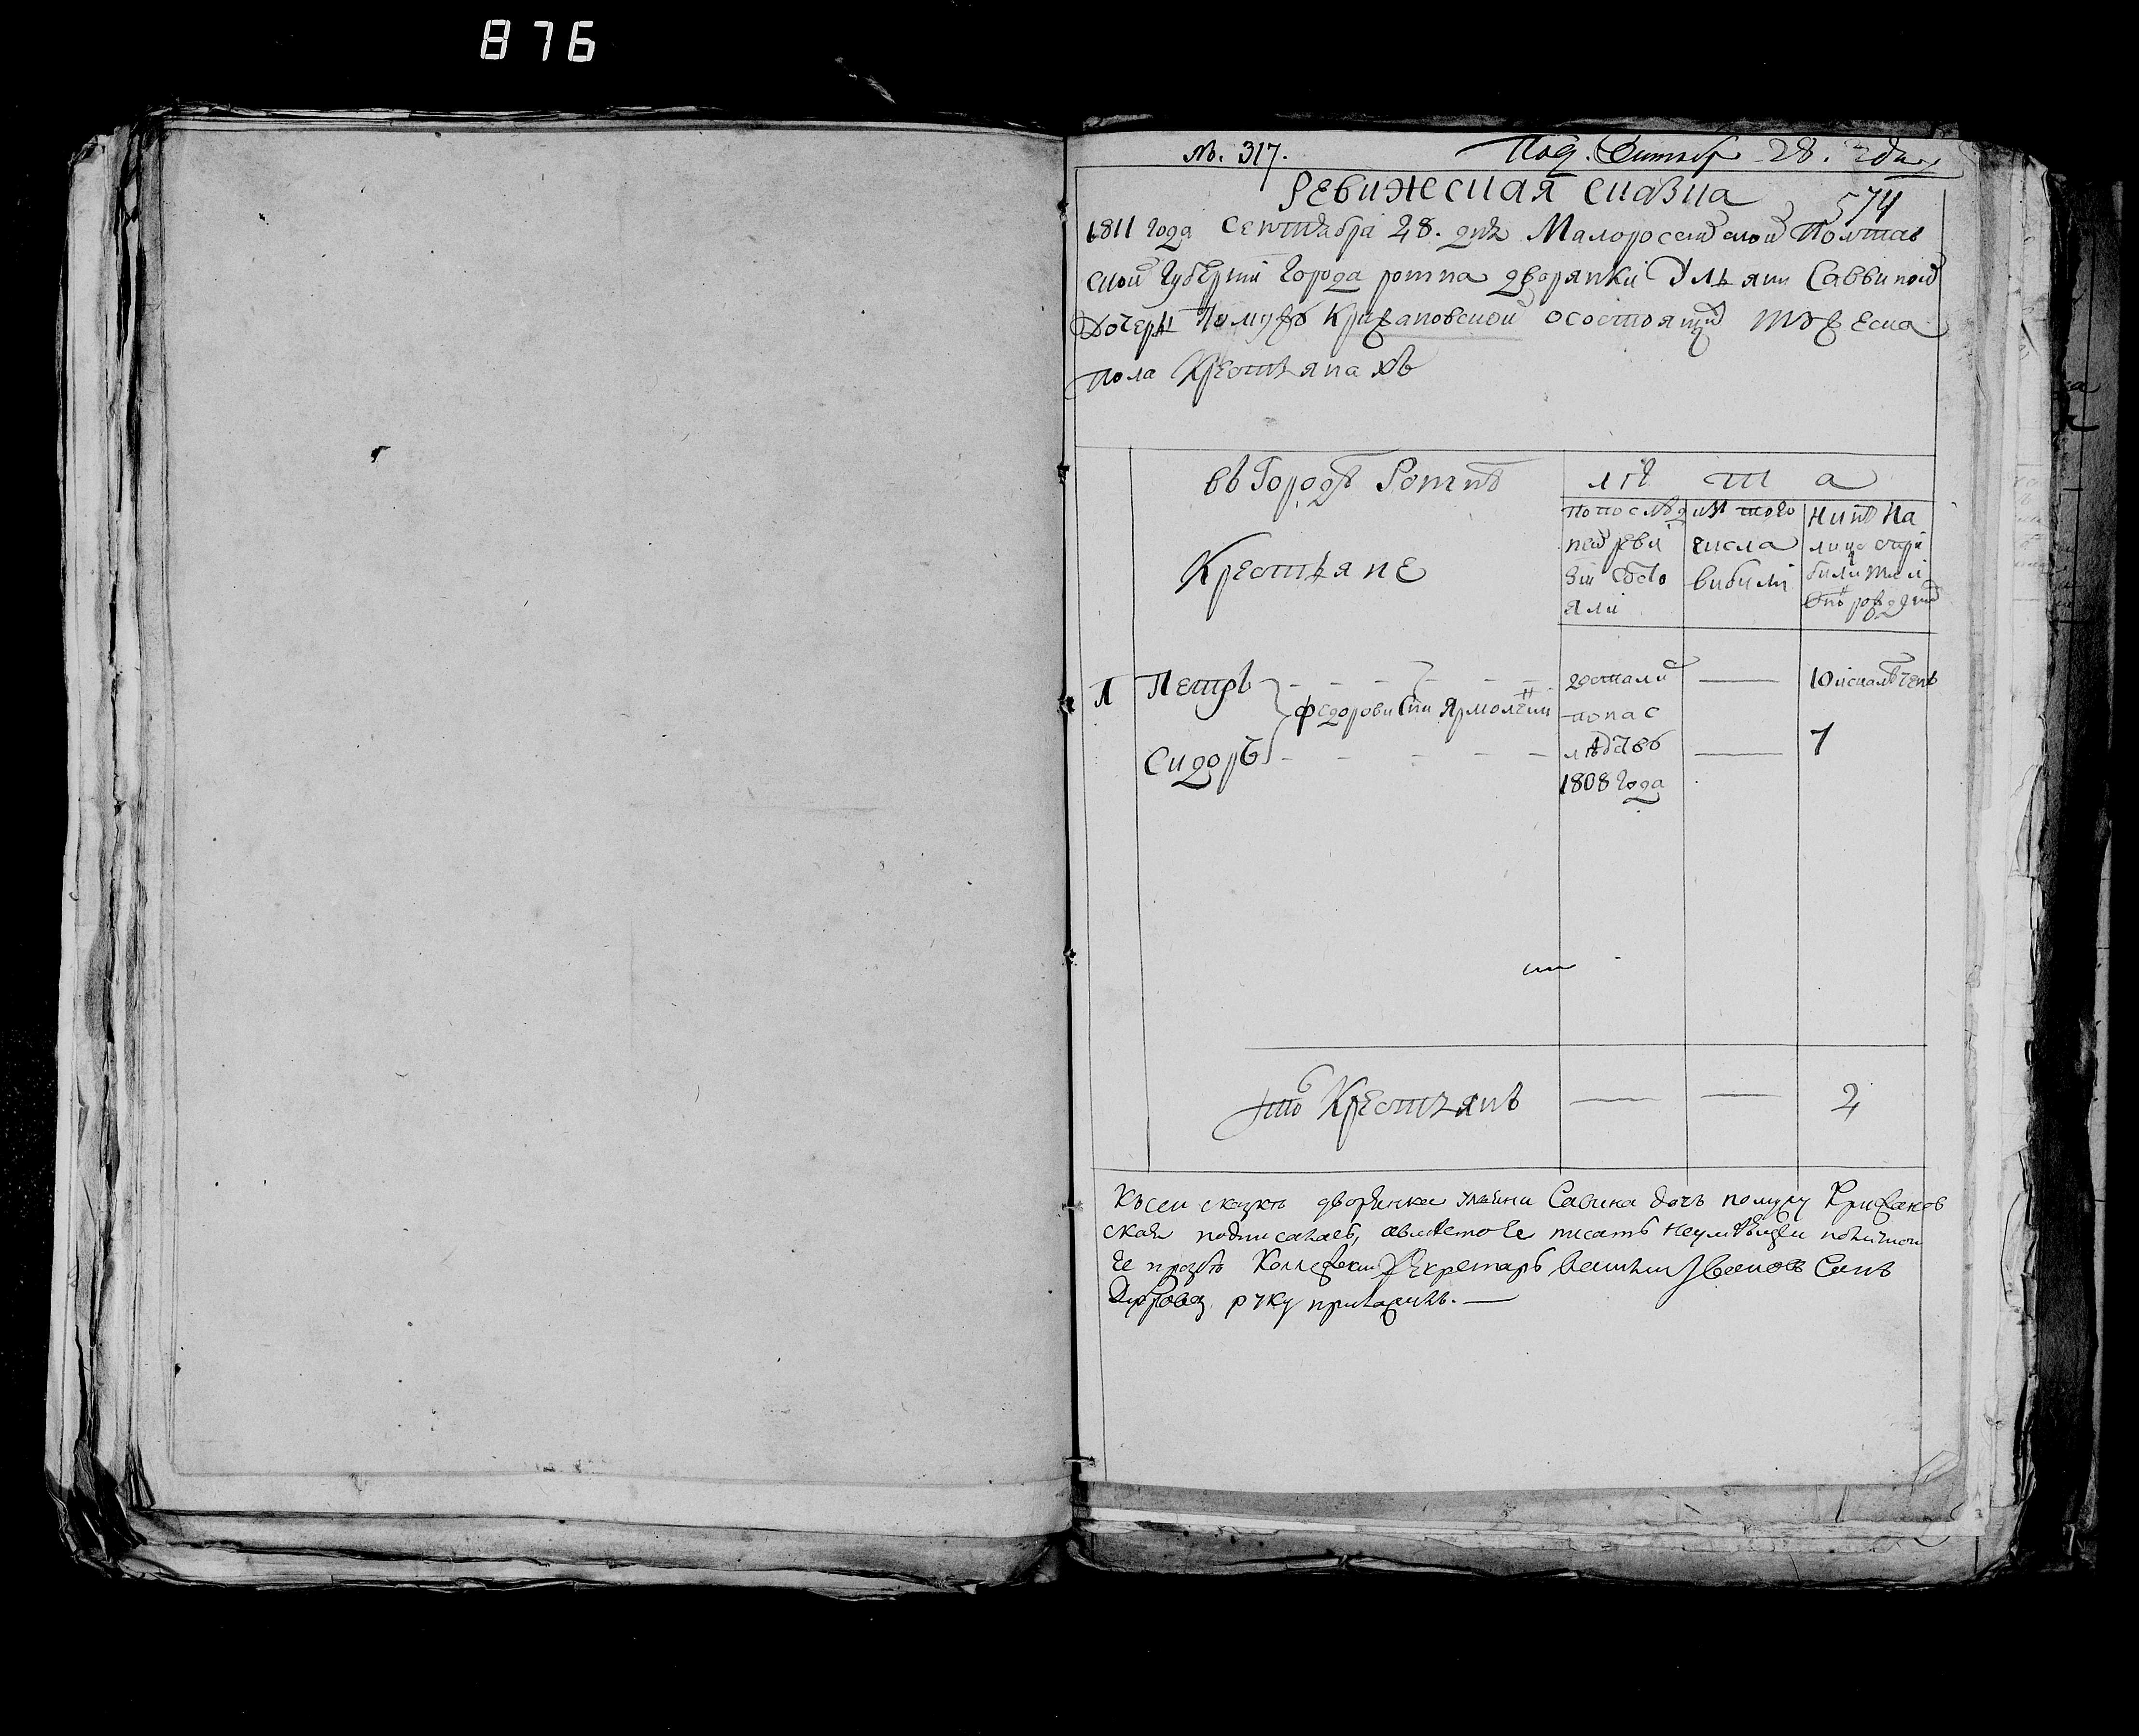 876
№. 317.
Под. Сентябр 28. дня
Ревижская сказка
574
1811 года сентября 28. дня Малоросейской Полтав
ской губерний города ромна дворянки Улияни Саввиной
Дочери по мужу Крижановской осостоящий мужеска
пола Крестьянахъ
въ Городѣ Ромнѣ
Крестьяне
лѣ т а
по послѣд
ней реви
зіи состо
яли
изъ того
числа
вибили
нинѣ на
лицо
1 Петръ
Федорови Сни Ярмоленки
Сидоръ
достали
попос
лѣ
1808 года
— 10
— 7
Крестьянъ — — 2
Къ сей сказкѣ дворянка Савина дочь помужу Крижанов
ская подписалась, авместо ее писать неумѣющей поличной
ее прозбѣ Колежский Секретарь Ивановъ Синъ
руку приложилъ. —